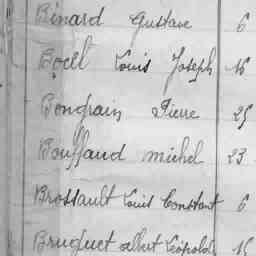 Binard Gustave 6
Boëll Louis Joseph 16
Bongrain Pierre 25
Bouffaud Michel 23
Brossault Louis Constant 6
Bruguet Albert Léopold 15